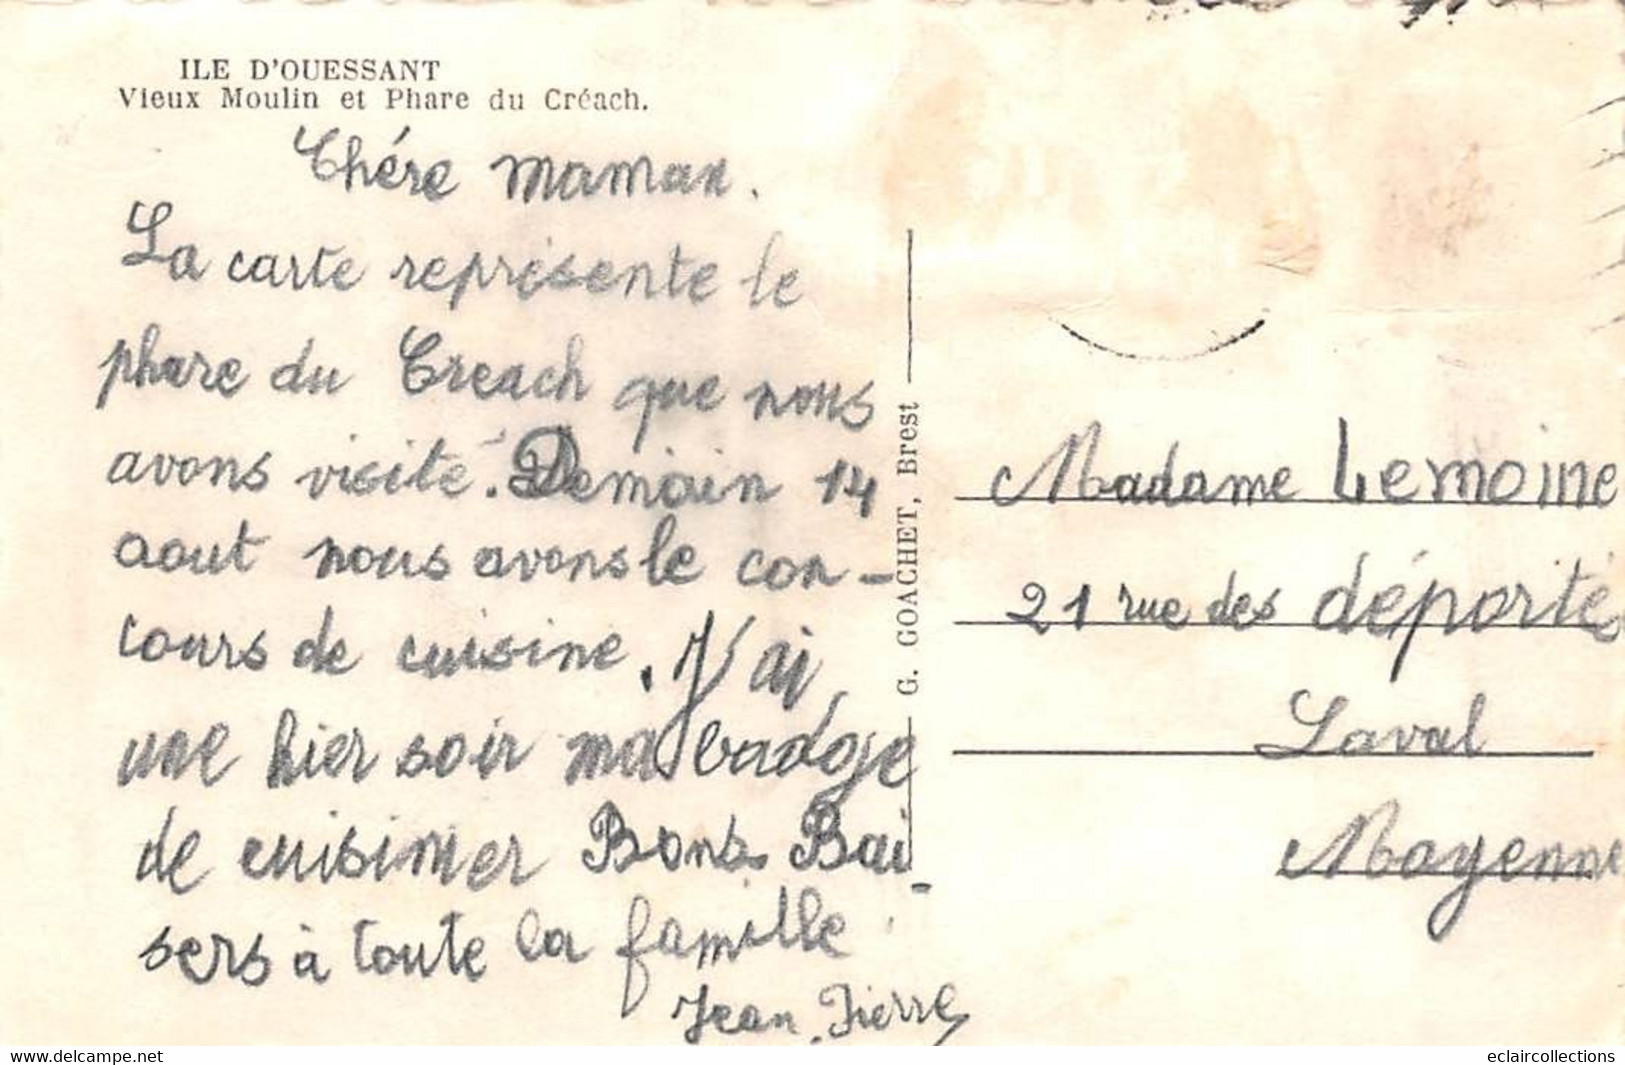 ILE D'OUESSANT
Vieux Moulin et Phare du Créach.
Chére maman.
La carte représente le
phare du Creach que nous
avons visité. Demain 14
aout nous avons le con-
cours de cuisine. J'ai
une hier soir ma badge
de cuisinier Bons Bai-
sers à toute la famille
Jean-Pierre
G. GOACHET, Brest
Madame Lemoine
21 rue des déportés
Laval
Mayenne
www.delcampe.net
eclaircollections